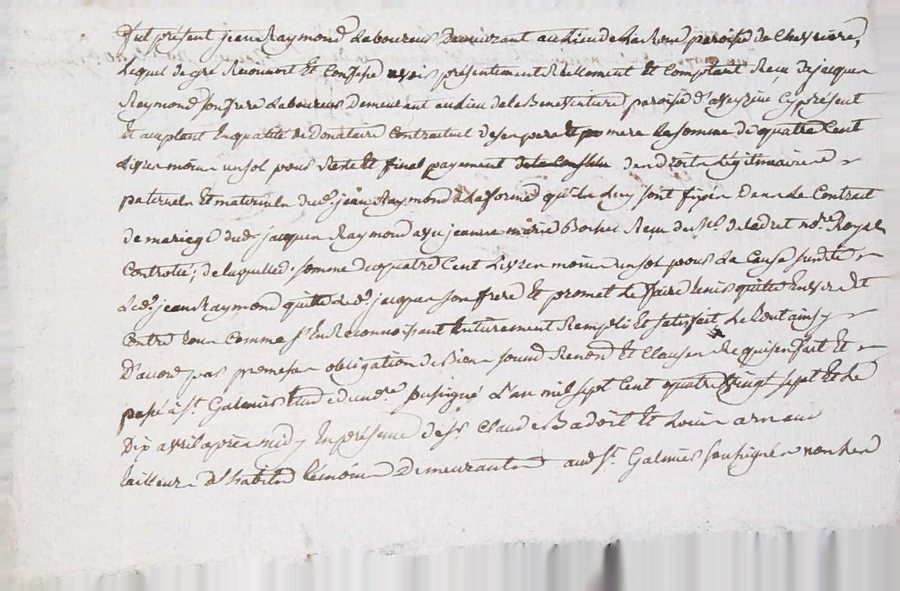 fut présent jean Raymond Laboureur Demeurant au Lieu de La Rone paroisse de Chevriere,
Lequel de gré Reconnoit Et Confesse avoir présentement Réellement et Comptant Reçu de jacques
Raymond son frere Laboureur demeurant au dieu de la Beneventure paroisse d'aveyzine cy présent
Et aceptent En qualité de Donataire Contractuel de ses pere Et mere La somme de quatre Cent
Livres moins un sol pour Reste Et final payement de ses droits Légitimaires
paternels Et maternels dud. jean Raymond qui Luy sont fixés Dans Le Contrat
de mariage dud. jacques Raymond avec jeanne marie Recu de Me. notre Royal
Controlé; de laquelle somme de quatre Cent Livres moins un sol pour La Cause susdite
Led. jean Raymond quitte Led. jacques son frere Et promet Le faire tenir quitte Envers Et
Contre tous Comme s'En Reconnoissant Entierement Rempli Et satisfait Le tout ainsy
D'acord par promesse obligation de Biens soumd. Renond. Et Clauses Requises fait Et
passé à St. Galmier Etude du nore. soussigné L'an mil sept Cent quatre vingt sept Et Le
Dix avril après midy En présence de sr. Claude Badoit Et Louis arnaud
tailleur d'habits témoins Demeurants aud. St. Galmier soussignés non Led.